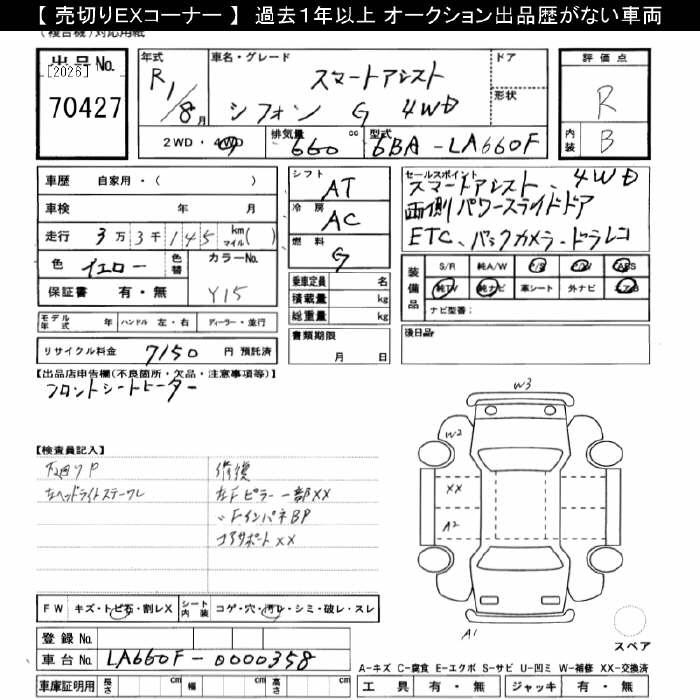 【 売切りEXコーナー 】 過去1年以上 オークション出品歴がない車両
(複合機)対応用紙
出品No. 年式 車名・グレード ドア 評価点
[2026] R1/8月 スマートアシスト
70427 シフォン G 4WD 形状 R
2WD・4WD 排気量 660 cc 型式 6BA-LA660F 内装 B
車歴 自家用・( ) シフト AT セールスポイント スマートアシスト、4WD
車検 年 月 冷房 AC 両側パワースライドドア
走行 3万3千145 km マイル( ) 燃料 G ETC、バックカメラ、ドラレコ
色 イエロー 色替 カラーNo. Y15 乗車定員 名 装備品 S/R 純A/W P/S P/W ABS
保証書 有・無 積載量 kg 純TV 純ナビ 革シート 外ナビ エアB
総重量 kg ナビ型番:
モデル年式 年 ハンドル 左・右 ディーラー・並行 書類期限 後日品
リサイクル料金 7150 円 預託済 月 日
【出品店申告欄(不良箇所・欠品・注意事項等)】
フロントシートヒーター
W3
W2
【検査員記入】
下廻りP 修復
左ヘッドライトステーワレ 左Fピラー一部XX XX
〃FインパネBP A2
コアサポートXX
FW キズ・トビ石・割レX シート内装 コゲ・穴・汚レ・シミ・破レ・スレ
登録No. A1 スペア
車台No. LA660F-0000358 A-キズ C-腐食 E-エクボ S-サビ U-凹ミ W-補修 XX-交換済
車庫証明用 長さ cm 幅 cm 高さ cm 工具 有・無 ジャッキ 有・無